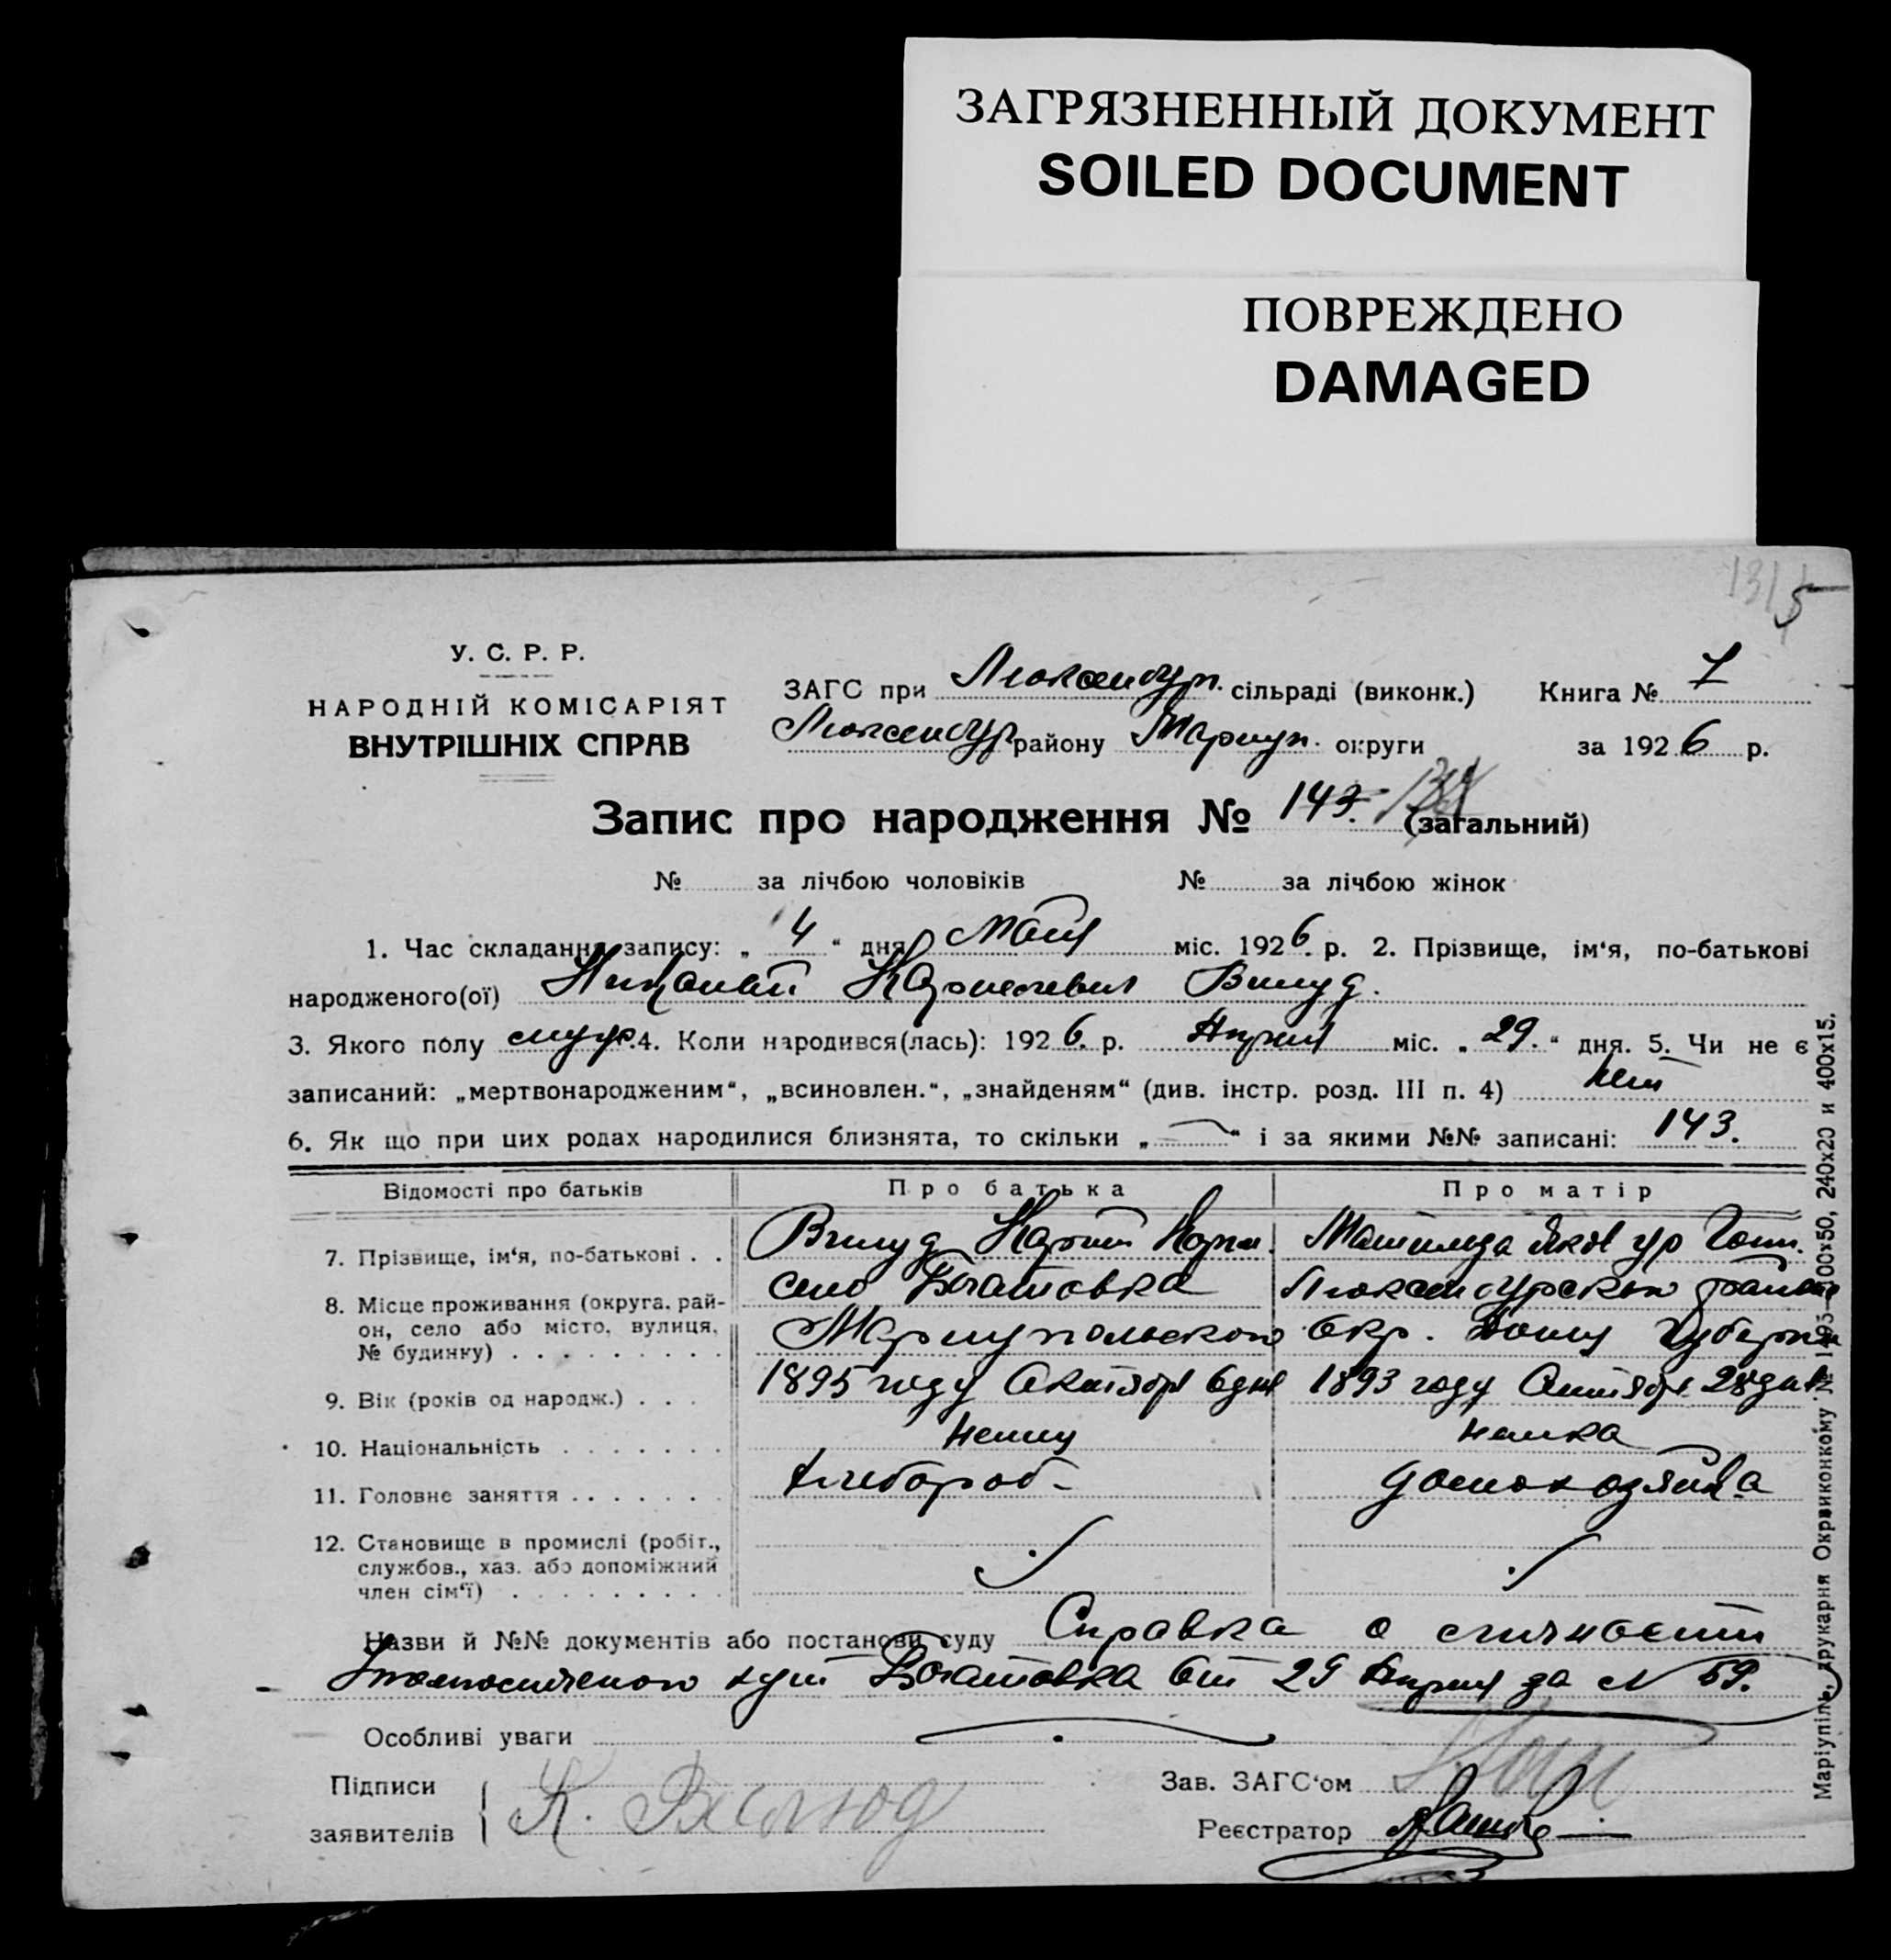 ЗАГРЯЗНЕННЫЙ ДОКУМЕНТ
SOILED DOCUMENT
ПОВРЕЖДЕНО
DAMAGED
5
У. С. Р. Р.
НАРОДНІЙ КОМІСАРІЯТ
ВНУТРІШНІХ СПРАВ
ЗАГС при Люксембур. сільраді (виконк.) Книга № 7
Люксембур району Мариуп. округи за 1926 р.
Запис про народження № 143. (загальний)
№ за лічбою чоловіків № за лічбою жінок
1. Час складання запису: „ 4 “ дня Мая міс. 1926. р. 2. Прізвище, ім‘я, по-батькові
народженого(ої)
3. Якого полу 4. Коли народився(лась): 1926. р. Апреля міс. „ 29. “ дня. 5. Чи не є
записаний: „мертвонародженим“, „всиновлен.“, „знайденям“ (див. інстр. розд. III п. 4) нет
6. Як що при цих родах народилися близнята, то скільки „ — “ і за якими №№ записані: 143.
Відомості про батьків Про батька Про матір
7. Прізвище, ім‘я, по-батькові . . Матильда Яков ур
8. Місце проживання (округа, рай- село Богатовка Люксембургского района
он, село або місто, вулиця, Мариупольского Окр.
№ будинку)
9. Вік (років од народж.) . . . 1895 году Октября 6 дня 1893 году 28 дня
10. Національність немец немка
11. Головне заняття хлебороб- домохозяйка
12. Становище в промислі (робіт.,
службов., хаз. або допоміжний
член сім‘ї)
Назви й №№ документів або постанови суду Справка о личности
Уполномоченого хут Богатовка От 29 Апреля за N 59.
Особливі уваги
Підписи Зав. ЗАГС‘ом
заявителів К. Вилюд Реєстратор
Маріупіль, друкарня Окрвиконкому № 1495—100х50, 240х20 и 400х15.